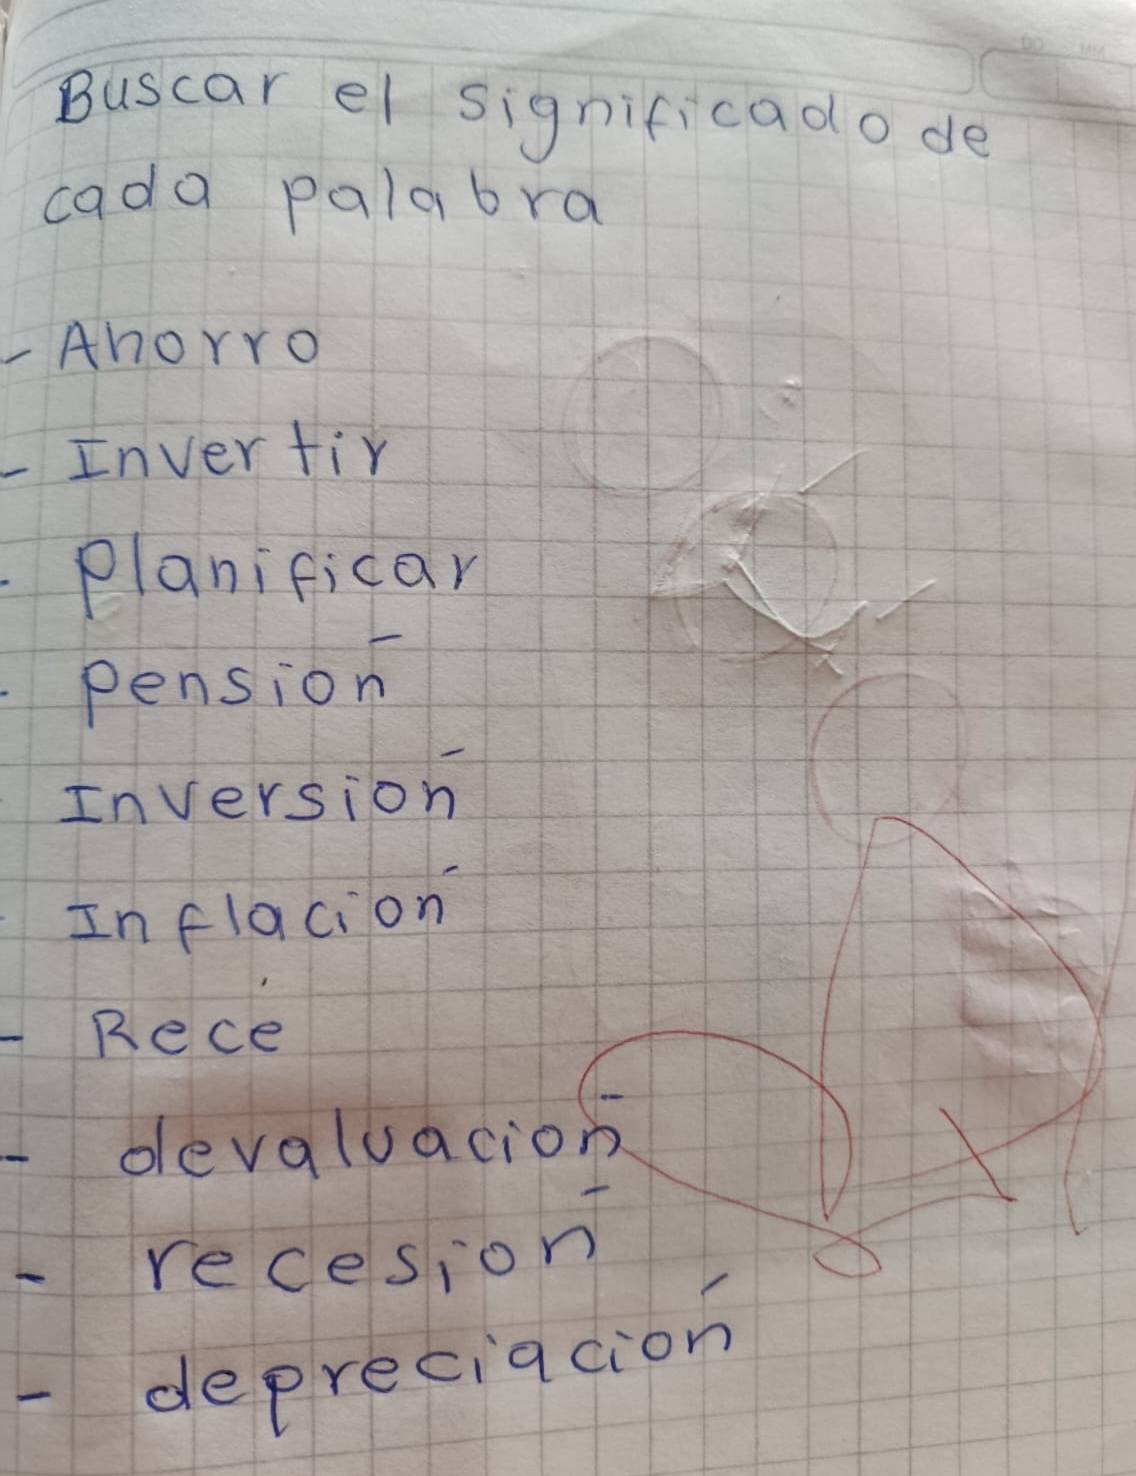 Buscar el significado de
cada palabra
- Ahorro
- Invertir
- planificar
- pensión
- Inversión
- Inflación
- Rece
- devaluación
- recesión
- depreciación